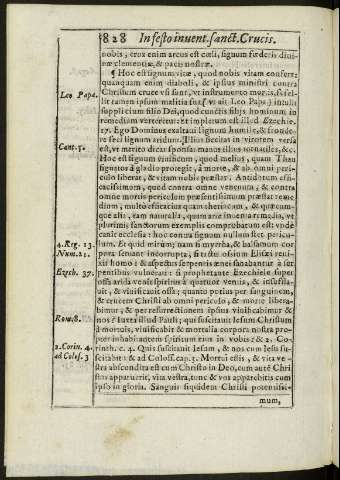 828 In festo invent. sanct. Crucis.
nobis, crux enim arcus est cœli, signum fœderis divi-
næ clementiæ, & pacis nostræ.
¶ Hoc est signum vitæ, quod nobis vitam confert:
quanquam enim diaboli, & ipsius ministri contra
Christum cruce usi sunt, ut instrumento mortis, fefel-
Leo Papa.
lit tamen ipsum malitia sua (ut ait Leo Papa) intulit
supplicium filio Dei, quod cunctis filiis hominum in
remedium verteretur: & impletum est illud Ezechie.
17. Ego Dominus exaltavi lignum humile, & fronde-
re feci lignum
est, ut merito dicat sponsa: manus illius tornatiles, &c.
Cant. 5.
Hoc est signum vivificum, quod melius, quam Thau
signatos à gladio protegit, à morte, & ab omni peri-
culo liberat, & vitam nobis præstat: Antidotum effi-
cacissimum, quod contra omne venenum, & contra
omne mortis periculum præsentissimum præstat reme-
dium, multo efficacius quam theriacam, & quæcum-
que alia, tam naturalia, quam arte inventa remedia, ut
plurimis sanctorum exemplis comprobatum est: unde
canit ecclesia: hoc contra signum nullum stet pericu-
4. Reg. 13.
lum. Et quid mirum; nam si myrrha, & balsamum cor
Num. 21.
pora servant incorrupta, si tactus ossium Elisæi revi-
xit homo: & aspectus serpentis ænei sanabantur à ser
Ezech. 37.
pentibus vulnerati: si prophetante Ezechiele super
ossa arida venit spiritus à quatuor ventis, & insuffla-
vit, & vivificavit ossa: quanto potius per sanguinem,
& crucem Christi ab omni periculo, & morte libera-
bimur, & per resurrectionem ipsius vivificabimur &
Rom. 8.
nos? Iuxta illud Pauli; qui suscitavit Iesum Christum
à mortuis, vivificabit & mortalia corpora nostra pro-
per inhabitantem spiritum eius in vobis: & 2. Co-
2. Corin. 4.
rinth. c. 4. Qui suscitavit Iesum, & nos cum Iesu sus
ad Colos. 3
citabit: & ad Coloss. cap. 3. Mortui estis, & vita ve-
stra abscondita est cum Christo in Deo, cum autē Chri
stus apparuerit, vita vestra, tunc & vos apparebitis cum
ipso in gloria. Sanguis siquidem Christi potentissi-
mum,